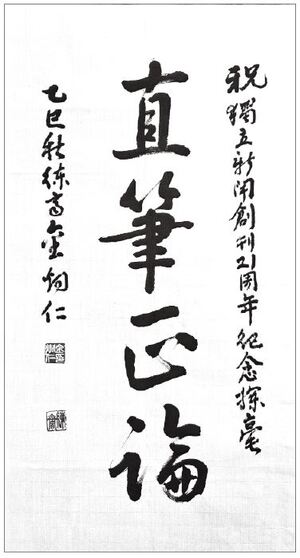 祝獨立新聞創刊21周年紀念揮毫
直筆正論
乙巳秋練高金炯仁